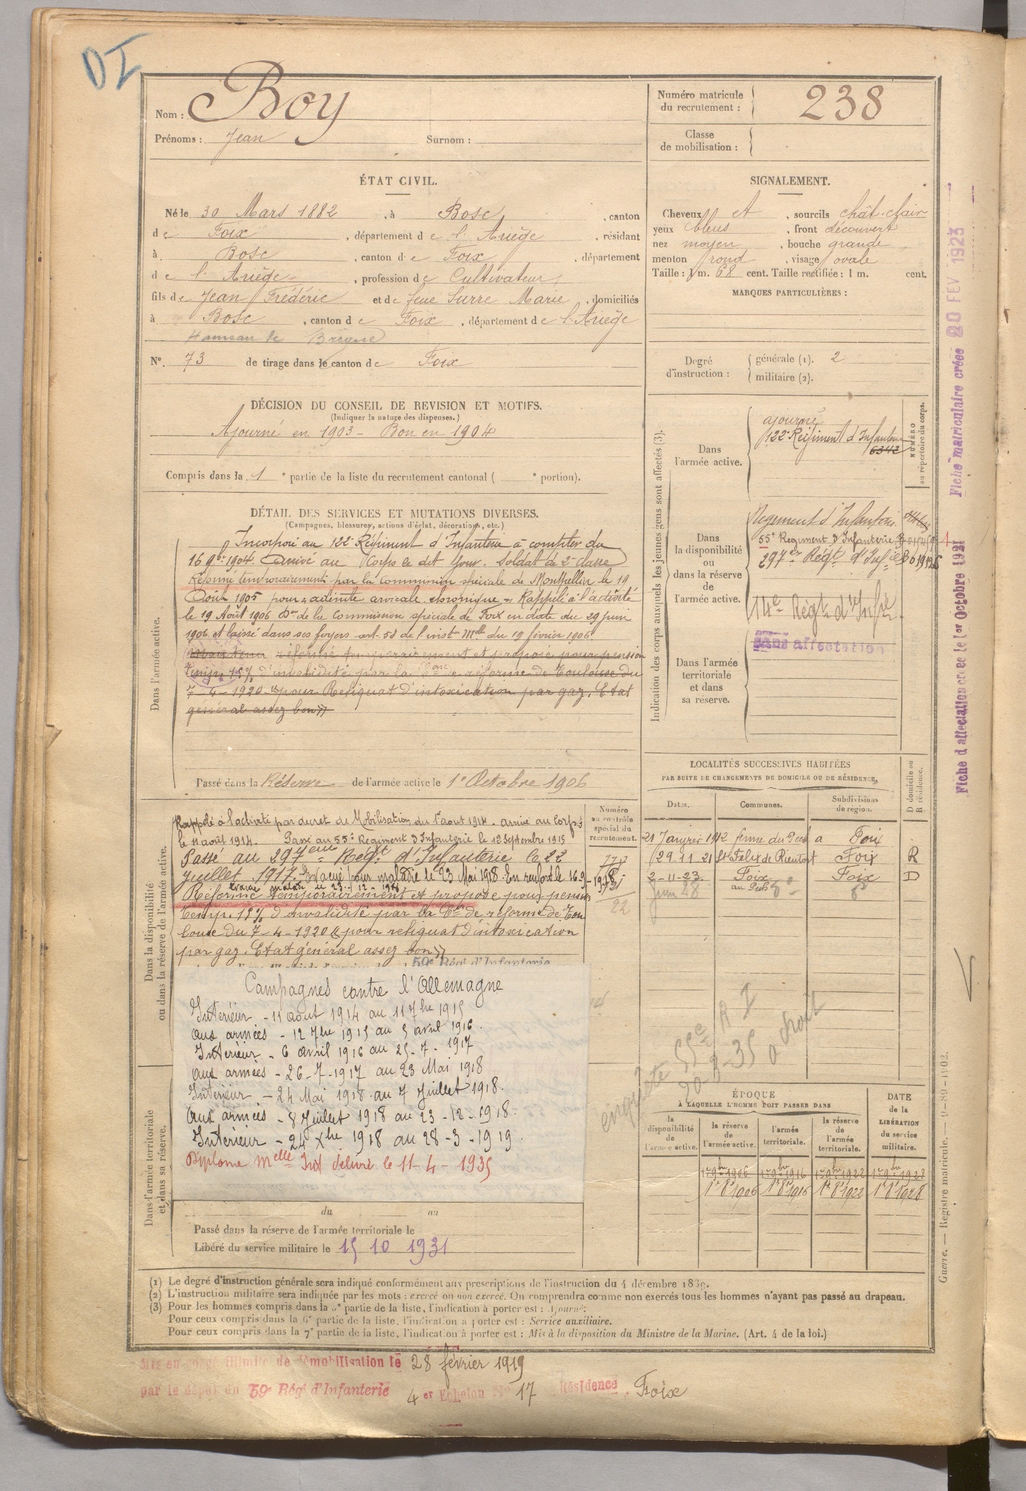 DI
Nom : Boy
Prénoms : Jean Surnom :
Numéro matricule du recrutement : 238
Classe de mobilisation :
ÉTAT CIVIL.
Né le 30 Mars 1882, à Bosc, canton
de Foix, département de l'Ariège, résidant
à Bosc, canton de Foix, département
de l'Ariège, profession de Cultivateur,
fils de Jean Frédéric et de feue Surre Marie, domiciliés
à Bosc, canton de Foix, département de l'Ariège
Hameau de
N°. 73 de tirage dans le canton de Foix
SIGNALEMENT.
Cheveux et, sourcils chât. clair
yeux bleus, front découvert
nez moyen, bouche grande
menton rond, visage ovale
Taille : 1 m. 68 cent. Taille rectifiée : 1 m. cent.
MARQUES PARTICULIÈRES :
Degré d'instruction : générale (1). 2
militaire (2).
DÉCISION DU CONSEIL DE REVISION ET MOTIFS.
(Indiquer la nature des dispenses.)
Ajourné en 1903 - Bon en 1904
Compris dans la 1e partie de la liste du recrutement cantonal ( e portion).
DÉTAIL DES SERVICES ET MUTATIONS DIVERSES.
(Campagnes, blessures, actions d'éclat, décorations, etc.)
Dans l'armée active.
Incorporé au 122e Régiment d'Infanterie à compter du
16 9bre 1904. Arrivé au Corps le dit jour. Soldat de 2e classe
Réformé temporairement par la commission spéciale de Montpellier le 19
Août 1905 pour adénite chronique - Rappelé à l'activité
le 19 Août 1906 Don de la Commission spéciale de Foix en date du 29 juin
1906 et laissé dans ses foyers art. 58 de l'inst. Mlle du 19 février 1906
réformé temporairement et proposé pour pension
temp. 15% d'invalidité par la Con de réforme de Toulouse du
7-4-1920 "pour Reliquat d'intoxication par gaz. Etat
général assez bon"
Passé dans la Réserve de l'armée active le 1er Octobre 1906
Indication des corps auxquels les jeunes gens sont affectés (3).
NUMÉRO au répertoire du corps.
Dans l'armée active.
ajourné
122e Régiment d'Infanterie
6342
Dans la disponibilité ou dans la réserve de l'armée active.
Régiment d'Infanterie
55e Régiment d'Infanterie
297e Régt d'Infie
14e Régt d'Infie
Dans l'armée territoriale et dans sa réserve.
Sans affectation
Fiche d'affectation créée le 1er Octobre 1921
Fiche matriculaire créée 20 FEV 1923
Dans la disponibilité ou dans la réserve de l'armée active.
Numéro au contrôle spécial du recrutement.
Rappelé à l'activité par décret de Mobilisation du 1er août 1914. Arrivé au Corps
le 11 août 1914. Passé au 55e Régiment d'Infanterie le 12 Septembre 1915
Passé au 297eme Régt d'Infanterie le 22
juillet 1917. Evacué pour maladie le 23 Mai 1918. En renfort le
Réformé temporairement et proposé pour pension
temp. 15% d'invalidité par la Con de réforme de Tou
louse du 7-4-1920 "pour reliquat d'intoxication
par gaz. Etat général assez bon"
59e Régt d'Infanterie
Campagnes contre l'Allemagne
Intérieur - 11 août 1914 au 11 7bre 1915
Aux armées - 12 7bre 1915 au 5 avril 1916.
Intérieur - 6 avril 1916 au 25-7-1917
Aux armées - 26-7-1917 au 23 Mai 1918
Intérieur - 24 Mai 1918 au 7 Juillet 1918.
Aux armées - 8 juillet 1918 au 23-12-1918.
Intérieur - 24 Xbre 1918 au 28-3-1919.
Diplôme Mlle délivré le 11-4-1935
Dans l'armée territoriale et dans sa réserve.
du au
Passé dans la réserve de l'armée territoriale le
Libéré du service militaire le 15 10 1931
LOCALITÉS SUCCESSIVES HABITÉES
PAR SUITE DE CHANGEMENTS DE DOMICILE OU DE RÉSIDENCE.
Dates. Communes. Subdivisions de région. D domicile ou R résidence.
21 Janvier 1912 Foix
29.11.21 St Félix de Rieutort Foix R
2-11-23. Foix Foix D
enquête 55e R I
20-8-35
ÉPOQUE
À LAQUELLE L'HOMME DOIT PASSER DANS
DATE de la LIBÉRATION du service militaire.
la disponibilité de l'armée active. la réserve de l'armée active. l'armée territoriale. la réserve de l'armée territoriale.
1er 8bre 1906 1er 8bre 1916 1er 8bre 1922 1er 8bre 1928
Guerre. — Registre matricule.
(1) Le degré d'instruction générale sera indiqué conformément aux prescriptions de l'instruction du 4 décembre 1889.
(2) L'instruction militaire sera indiquée par les mots : exercé ou non exercé. On comprendra comme non exercés tous les hommes n'ayant pas passé au drapeau.
(3) Pour les hommes compris dans la 5e partie de la liste, l'indication à porter est : Ajourné.
Pour ceux compris dans la 6e partie de la liste, l'indication à porter est : Service auxiliaire.
Pour ceux compris dans la 7e partie de la liste, l'indication à porter est : Mis à la disposition du Ministre de la Marine. (Art. 4 de la loi.)
Mis en congé illimité de démobilisation le 28 février 1919
par le dépôt du 59e Régt d'Infanterie 4er Echelon N° 17 Résidence, Foix